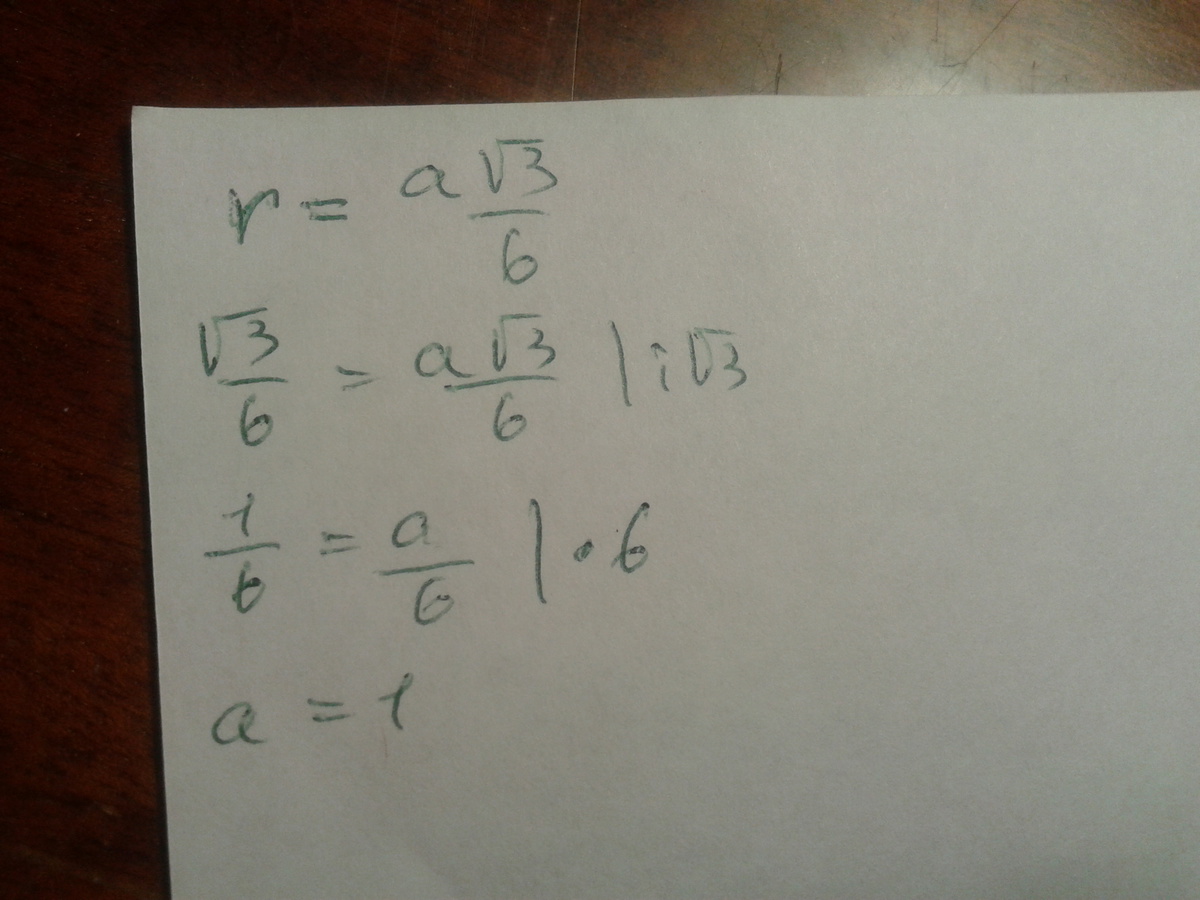 r = a√3/6
√3/6 = a√3/6 | : √3
1/6 = a/6 | • 6
a = 1